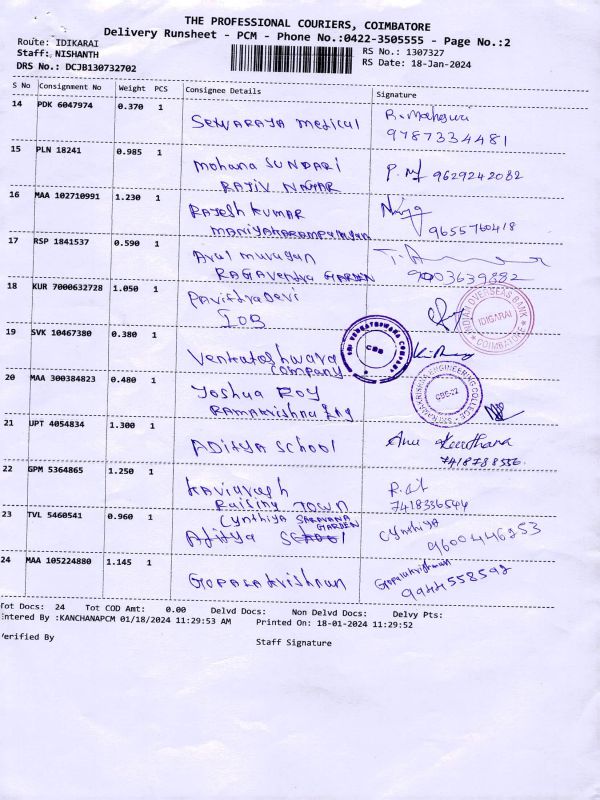 THE PROFESSIONAL COURIERS, COIMBATORE
Delivery Runsheet - PCM - Phone No.:0422-3505555 - Page No.:2
Route: IDIKARAI
RS No.: 1307327
Staff: NISHANTH
RS Date: 18-Jan-2024
DRS No.: DCJB130732702
S No Consignment No Weight PCS Consignee Details Signature
14 PDK 6047974 0.370 1
Selvaraja medical R. Maheswari
9787334481
15 PLN 18241 0.985 1
Mohana SUNDARI 9629242082
RAJIV NAGAR
16 MAA 102710991 1.230 1
RAJESH KUMAR
MANIYAKARAMPALAYAM 9655760418
17 RSP 1841537 0.590 1
Arul murugan
RAGAVendra GARDEN 9003639882
18 KUR 7000632728 1.050 1
Pavithradevi
IOB
INDIAN OVERSEAS BANK
IDIGARAI
COIMBATORE
19 SVK 10467380 0.380 1
Venkateshwara
Company
SRI VENKATESWARA COMPANY
CBE
20 MAA 300384823 0.480 1
Joshua Roy
Ramakrishna Eng
SRI RAMAKRISHNA ENGINEERING COLLEGE
CBE-22
21 UPT 4054834 1.300 1
ADITYA School Anu Keerthana
7418788556
22 GPM 5364865 1.250 1
Kaviyarash
Raising TOWN 7418336544
23 TVL 5460541 0.960 1
CYNTHIYA SARAVANA GARDEN Cynthiya
Aditya School 9600446253
24 MAA 105224880 1.145 1
Gopalakrishnan Gopalakrishnan
9944558592
Tot Docs: 24 Tot COD Amt: 0.00 Delvd Docs: Non Delvd Docs: Delvy Pts:
Entered By :KANCHANAPCM 01/18/2024 11:29:53 AM Printed On: 18-01-2024 11:29:52
Verified By
Staff Signature